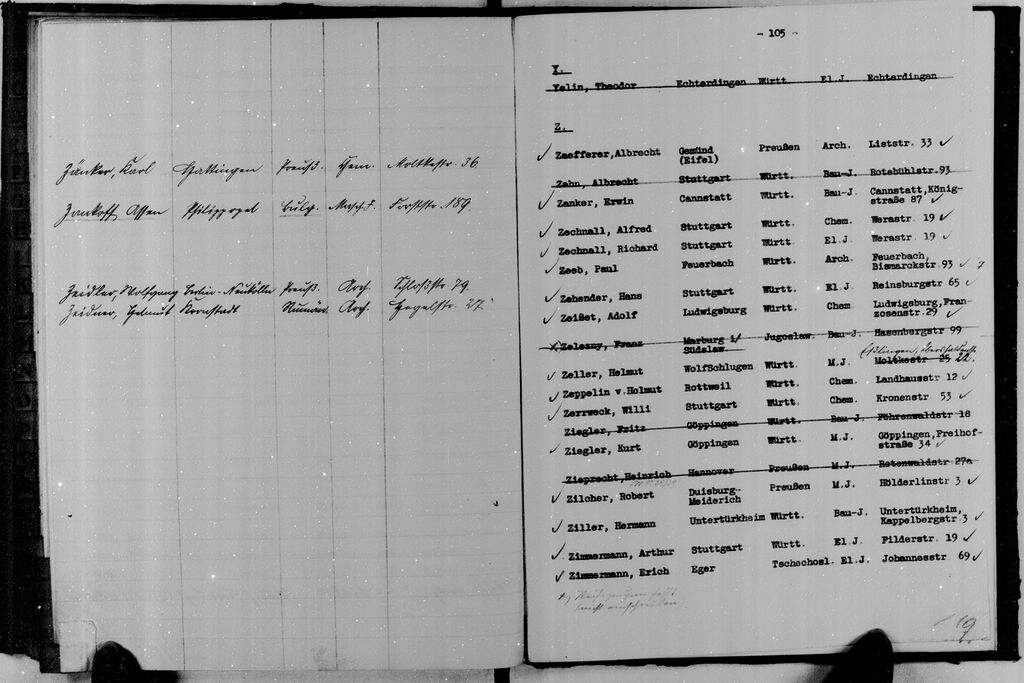 Zänker, Karl Hattingen Preuß. Chem. Moltkestr. 36
Zankoff Assen Philippopel Bulg. Masch.I. Forststr. 189.
Zeidler, Wolfgang Berlin-Neukölln Preuß. Arch. Schloßstr. 79.
Zeidner, Helmut Kronstadt Rumän. Arch. Hegelstr. 27.
- 105 -
Y.
Yelin, Theodor Echterdingen Württ. El.J. Echterdingen
Z.
✓ Zaefferer,Albrecht Gemünd Preußen Arch. Liststr. 33 ✓
(Eifel)
Zahn, Albrecht Stuttgart Württ. Bau-J. Rotebühlstr.93
✓ Zanker, Erwin Cannstatt Württ. Bau-J. Cannstatt,König-
straße 87 ✓
✓ Zechnall, Alfred Stuttgart Württ. Chem. Werastr. 19 ✓
✓ Zechnall, Richard Stuttgart Württ. El.J. Werastr. 19 ✓
✓ Zeeb, Paul Feuerbach Württ. Arch. Feuerbach,
Bismarckstr.93 ✓
✓ Zehender, Hans Stuttgart Württ. El.J. Reinsburgstr 65 ✓
✓ Zeißet, Adolf Ludwigsburg Württ. Chem. Ludwigsburg,Fran-
zosenstr.29 ✓
Zelezny, Franz Marburg i/ Jugoslaw. Bau-J. Hasenbergstr 99
Südslaw
Eßlingen,
✓ Zeller, Helmut Wolfschlugen Württ. M.J. Moltkestr 25 22.
✓ Zeppelin v.Holmut Rottweil Württ. Chem. Landhausstr 12 ✓
✓ Zerrweck, Willi Stuttgart Württ. Chem. Kronenstr 53 ✓
Ziegler, Fritz Göppingen Württ. Bau-J. Föhrenwaldstr 18
✓ Ziegler, Kurt Göppingen Württ. M.J. Göppingen,Freihof-
straße 34 ✓
Zieprecht,Heinrich Hannover Preußen M.J. Rotenwaldstr 27a
✓ Zilcher, Robert Duisburg- Preußen M.J. Hölderlinstr 3 ✓
Meiderich
✓ Ziller, Hermann Untertürkheim Württ. Bau-J. Untertürkheim,
Kappelbergstr 3 ✓
✓ Zimmermann, Arthur Stuttgart Württ. El.J. Filderstr. 19 ✓
✓ Zimmermann, Erich Eger Tschechosl. El.J. Johannesstr 69 ✓
nicht einschreiben